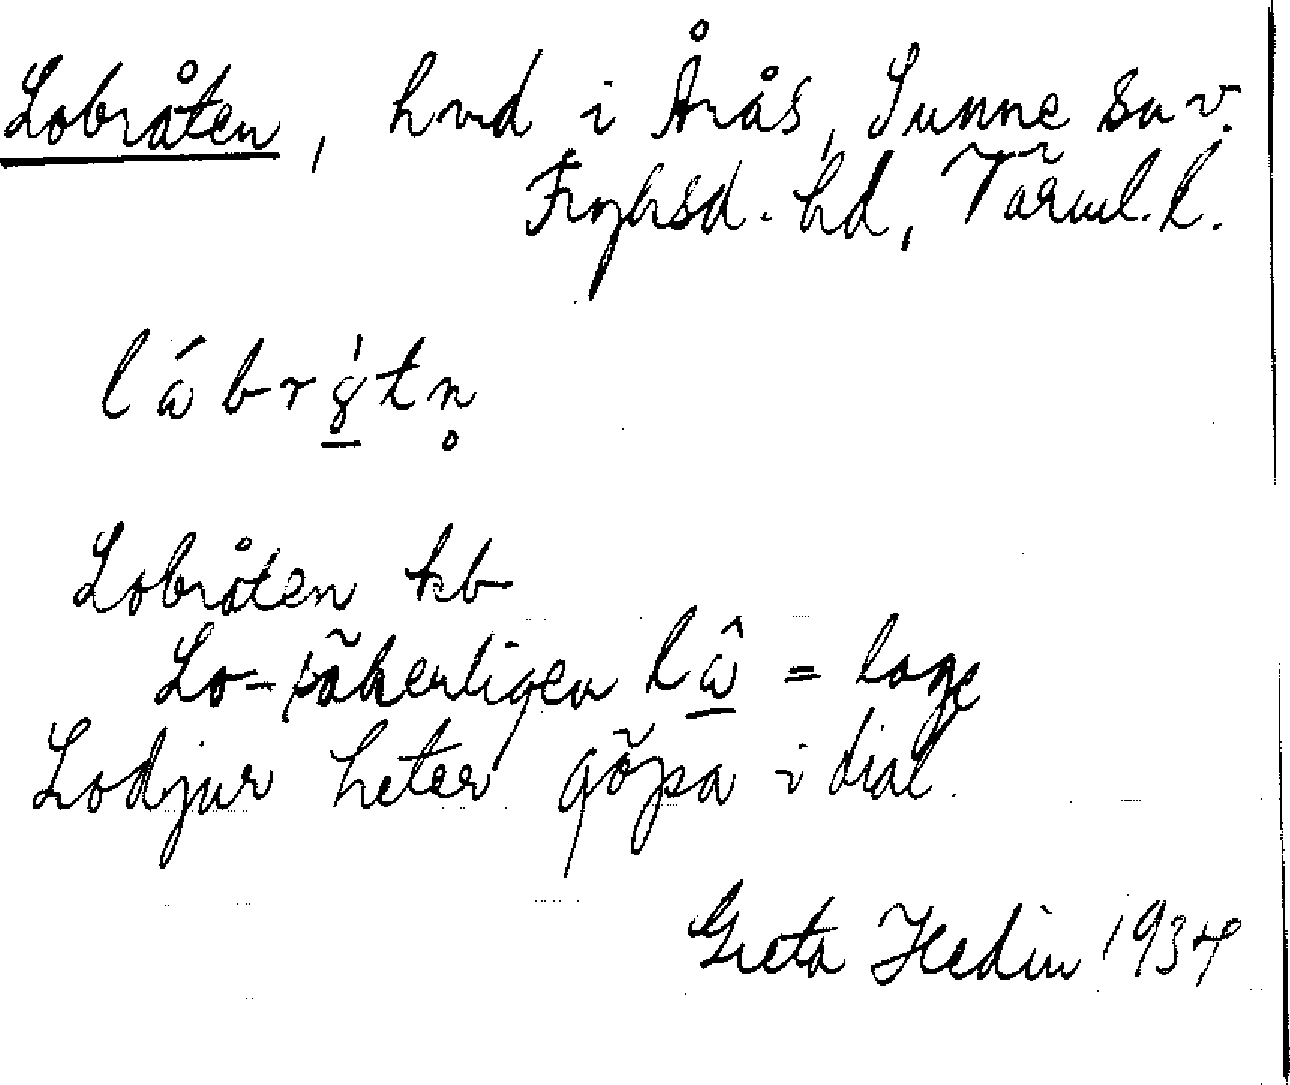 Lobråten, hmd i Årås, Sunne sn v.
Fryksd. hd, Värml. l.
Lobråten kb
Lo- säkerligen = loge
Lodjur heter göpa i dial.
Greta Hedin 1934